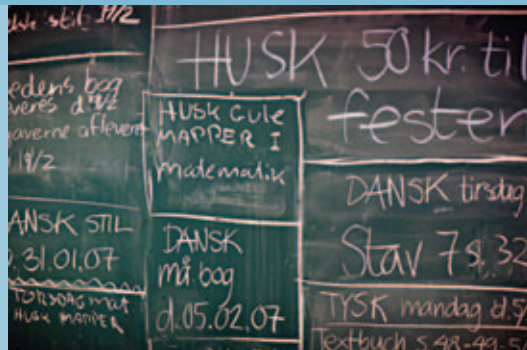 stil 19/2
edens bog
everes d. 9/2
gaverne aflevere
19/2
ANSK STIL
D. 31.01.07
TORSDAG mat
HUSK MAPPER
HUSK GULE
MAPPER I
matematik
DANSK
må. bog
d. 05.02.07
HUSK 50 kr. til
fester
DANSK tirsdag
Stav 7 s. 32
TYSK mandag d. 5/
Textbuch s 48-49-5